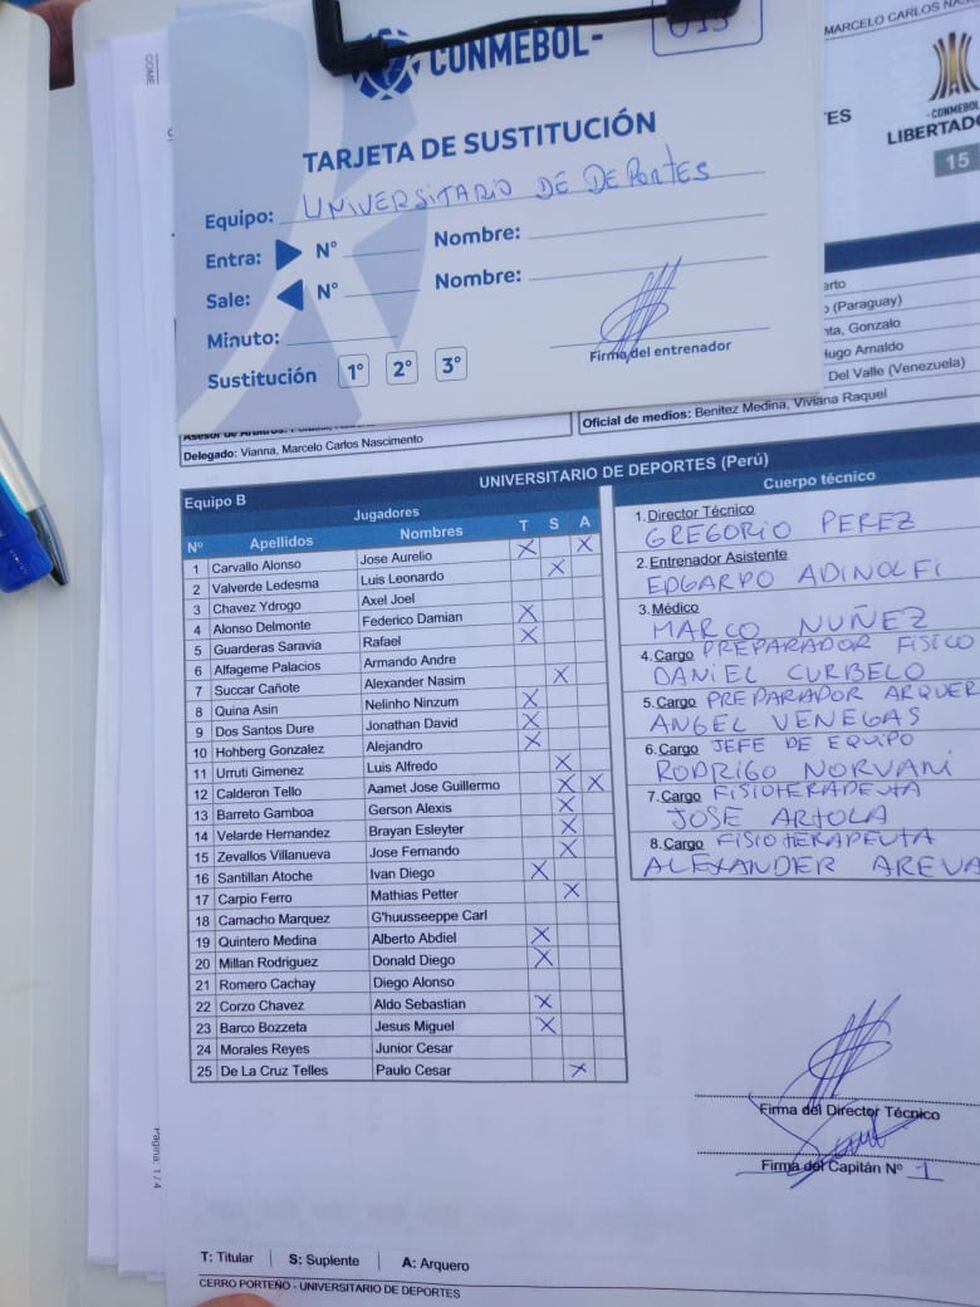 MARCELO CARLOS
CONMEBOL-
TARJETA DE SUSTITUCIÓN
Equipo: UNIVERSITARIO DE DEPORTES
Entra: N° Nombre:
Sale: N° Nombre:
Minuto:
Firma del entrenador
Sustitución 1° 2° 3°
TES
-CONMEBOL
LIBERTADO
15
erto
o (Paraguay)
nta, Gonzalo
Hugo Arnaldo
Del Valle (Venezuela)
Oficial de medios: Benitez Medina, Viviana Raquel
Delegado: Vianna, Marcelo Carlos Nascimento
Equipo B UNIVERSITARIO DE DEPORTES (Perú)
Jugadores
Nº Apellidos Nombres T S A
1 Carvallo Alonso Jose Aurelio X X
2 Valverde Ledesma Luis Leonardo X
3 Chavez Ydrogo Axel Joel
4 Alonso Delmonte Federico Damian X
5 Guarderas Saravia Rafael X
6 Alfageme Palacios Armando Andre
7 Succar Cañote Alexander Nasim X
8 Quina Asin Nelinho Ninzum X
9 Dos Santos Dure Jonathan David X
10 Hohberg Gonzalez Alejandro X
11 Urruti Gimenez Luis Alfredo X
12 Calderon Tello Aamet Jose Guillermo X X
13 Barreto Gamboa Gerson Alexis X
14 Velarde Hernandez Brayan Esleyter X
15 Zevallos Villanueva Jose Fernando X
16 Santillan Atoche Ivan Diego X
17 Carpio Ferro Mathias Petter X
18 Camacho Marquez G'huusseeppe Carl
19 Quintero Medina Alberto Abdiel X
20 Millan Rodriguez Donald Diego X
21 Romero Cachay Diego Alonso
22 Corzo Chavez Aldo Sebastian X
23 Barco Bozzeta Jesus Miguel X
24 Morales Reyes Junior Cesar
25 De La Cruz Telles Paulo Cesar X
Cuerpo técnico
1. Director Técnico
GREGORIO PEREZ
2. Entrenador Asistente
EDGARDO ADINOLFI
3. Médico
MARCO NUÑEZ
4. Cargo PREPARADOR FISICO
DANIEL CURBELO
5. Cargo PREPARADOR ARQUER
ANGEL VENEGAS
6. Cargo JEFE DE EQUIPO
RODRIGO NORVANI
7. Cargo FISIOTERAPEUTA
JOSE ARTOLA
8. Cargo FISIOTERAPEUTA
ALEXANDER AREVA
Firma del Director Técnico
Firma del Capitán Nº 1
Pagina: 1 / 4
T: Titular S: Suplente A: Arquero
CERRO PORTEÑO - UNIVERSITARIO DE DEPORTES